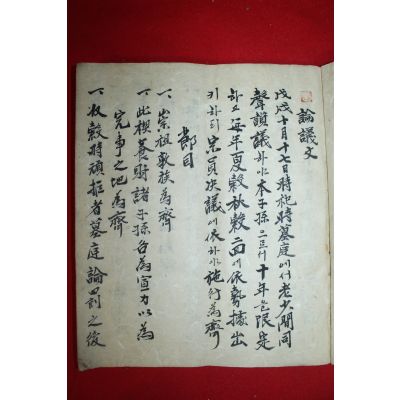 論議文
戊戌十月十七日時祀時墓庭에서老少間同
聲詢議하와本子孫으로서十年을限定
하고每年夏穀秋穀二回에依勢據出
키하되宗員决議에依하와施行為齊
節目
一、崇祖敦族為齊
一、此稧養財諸子孫各為宣力以為
完事之地為齊
一、收穀時頑拒者墓庭論罰之後